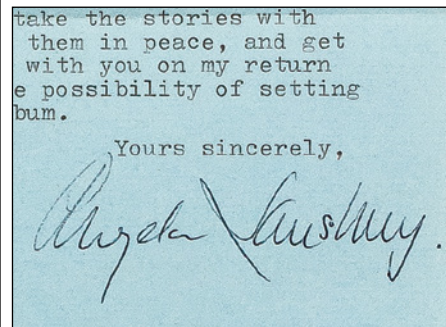 take the stories with
them in peace, and get
with you on my return
e possibility of setting
bum.
Yours sincerely,
Angela Lansbury.